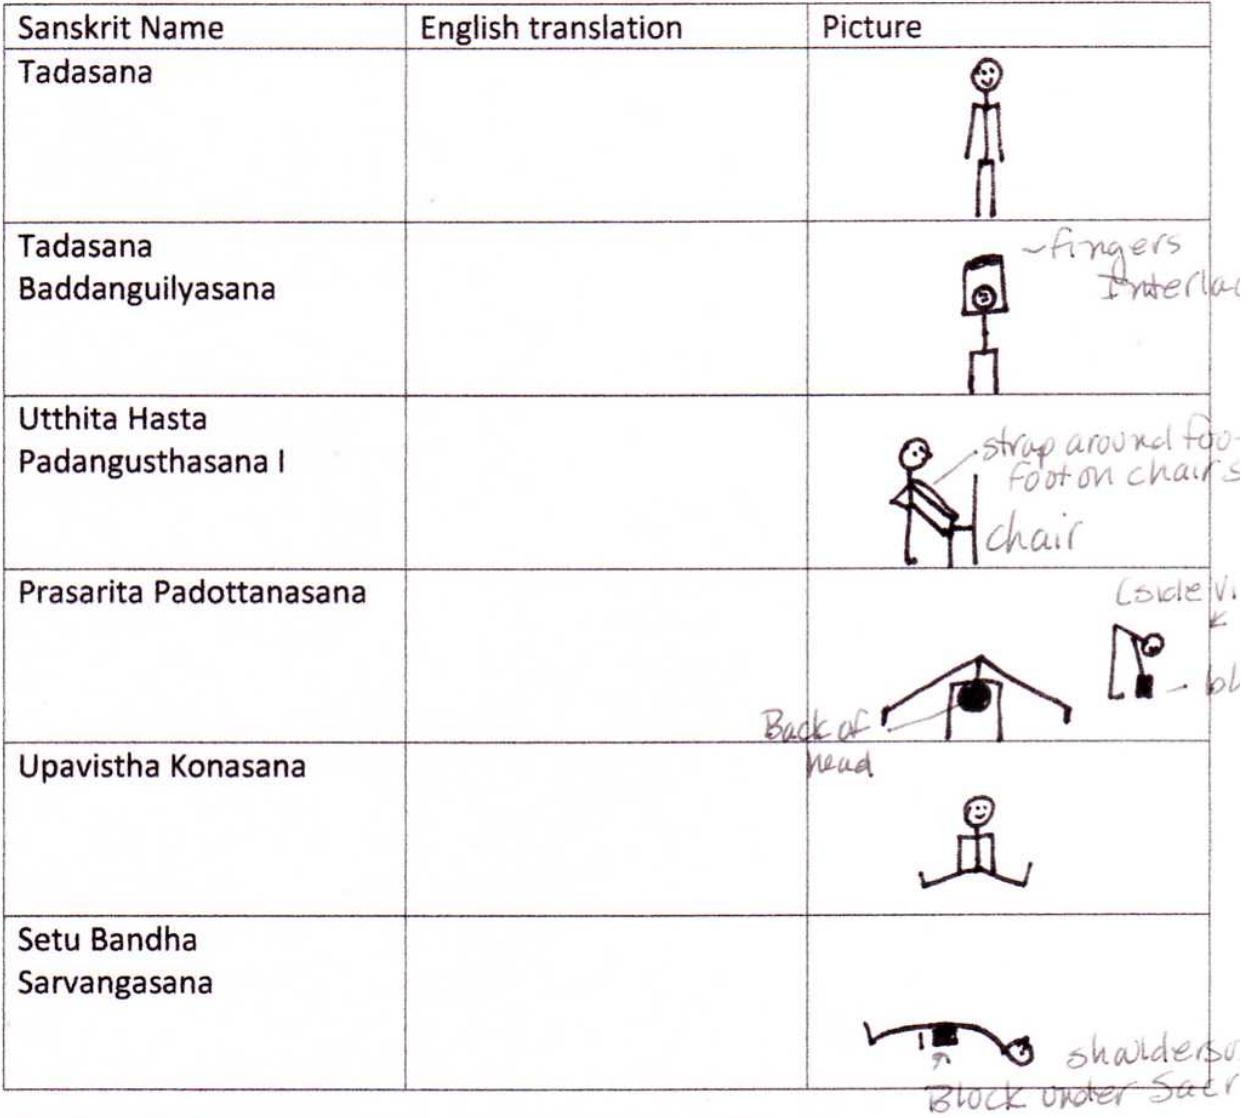 Sanskrit Name English translation Picture
Tadasana
Tadasana
Baddanguilyasana
~fingers
Utthita Hasta
Padangusthasana I
strap around
foot on chair
chair
Prasarita Padottanasana
(side
Back of
head
Upavistha Konasana
Setu Bandha
Sarvangasana
Block under